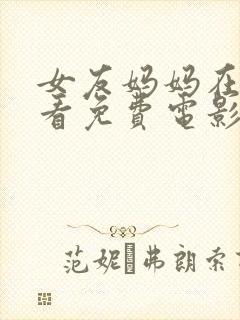 女友妈妈在
看免費電影
范妮 弗朗索